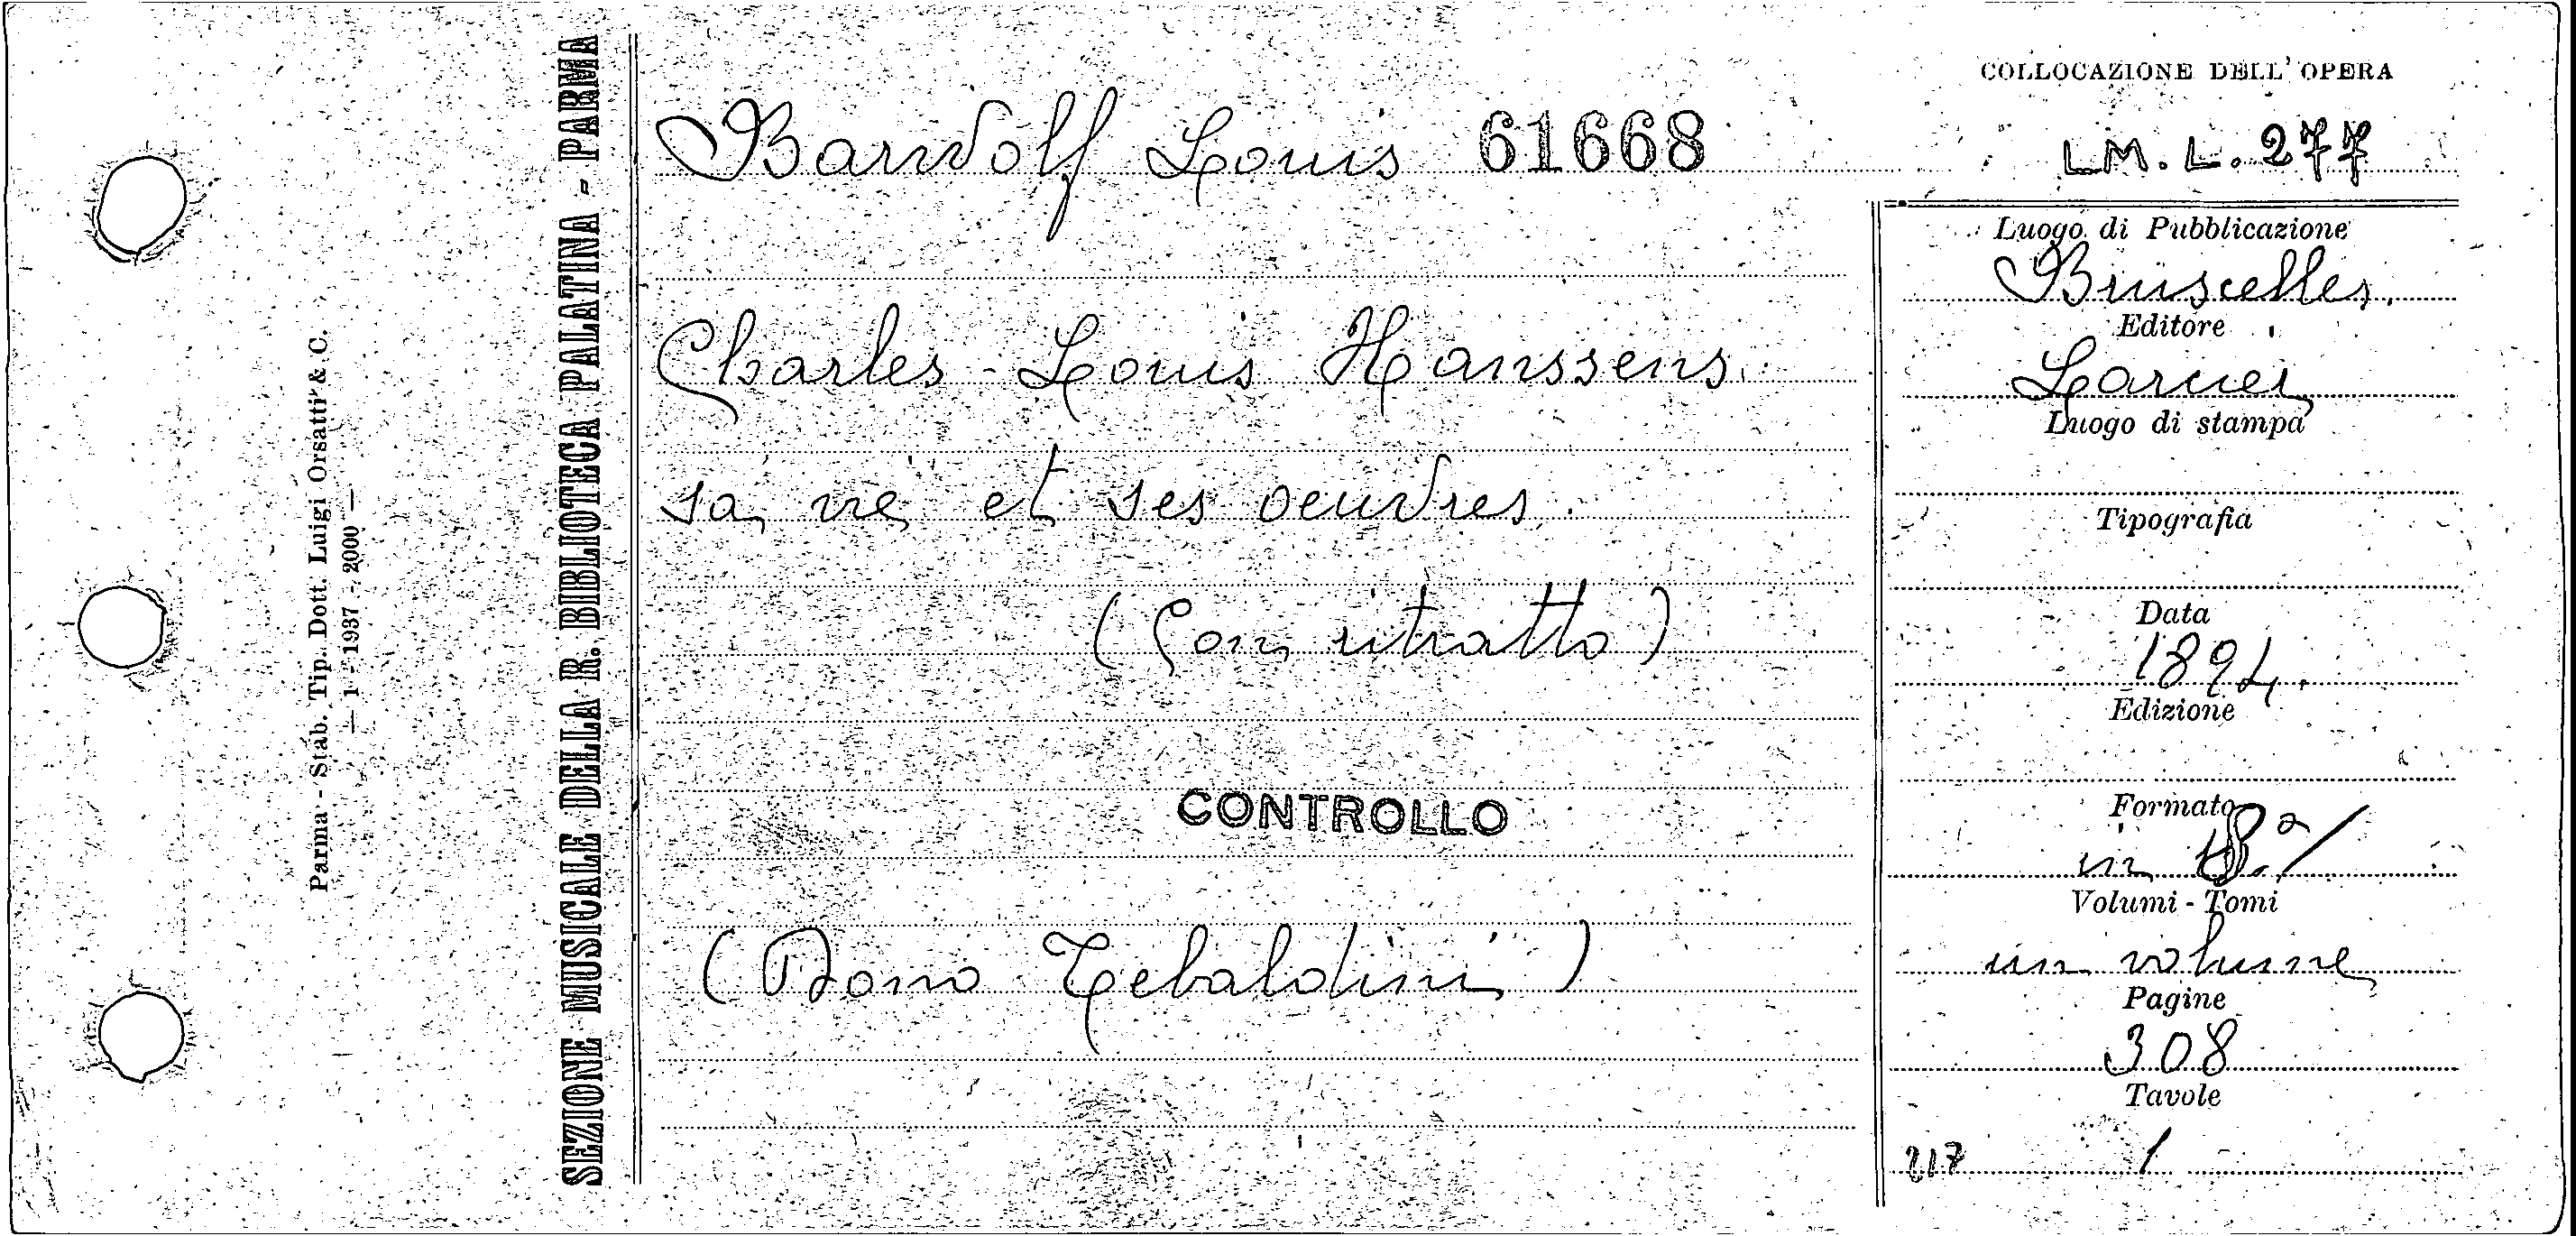 Parma - Stab. Tip. Dott. Luigi Orsatti & C.
— 1 - 1937 - 2000 —
SEZIONE MUSICALE DELLA R. BIBLIOTECA PALATINA - PARMA
Barwolf Louis 61668
Charles-Louis Hanssens
sa vie et ses oeuvres.
(Con ritratto)
CONTROLLO
(Dono Tebaldini)
COLLOCAZIONE DELL' OPERA
LM. L. 277
Luogo di Pubblicazione
Bruscelles.
Editore
Larcier
Luogo di stampa
Tipografia
Data
1894.
Edizione
Formato
in 8.°
Volumi - Tomi
un volume
Pagine
308
Tavole
217 1